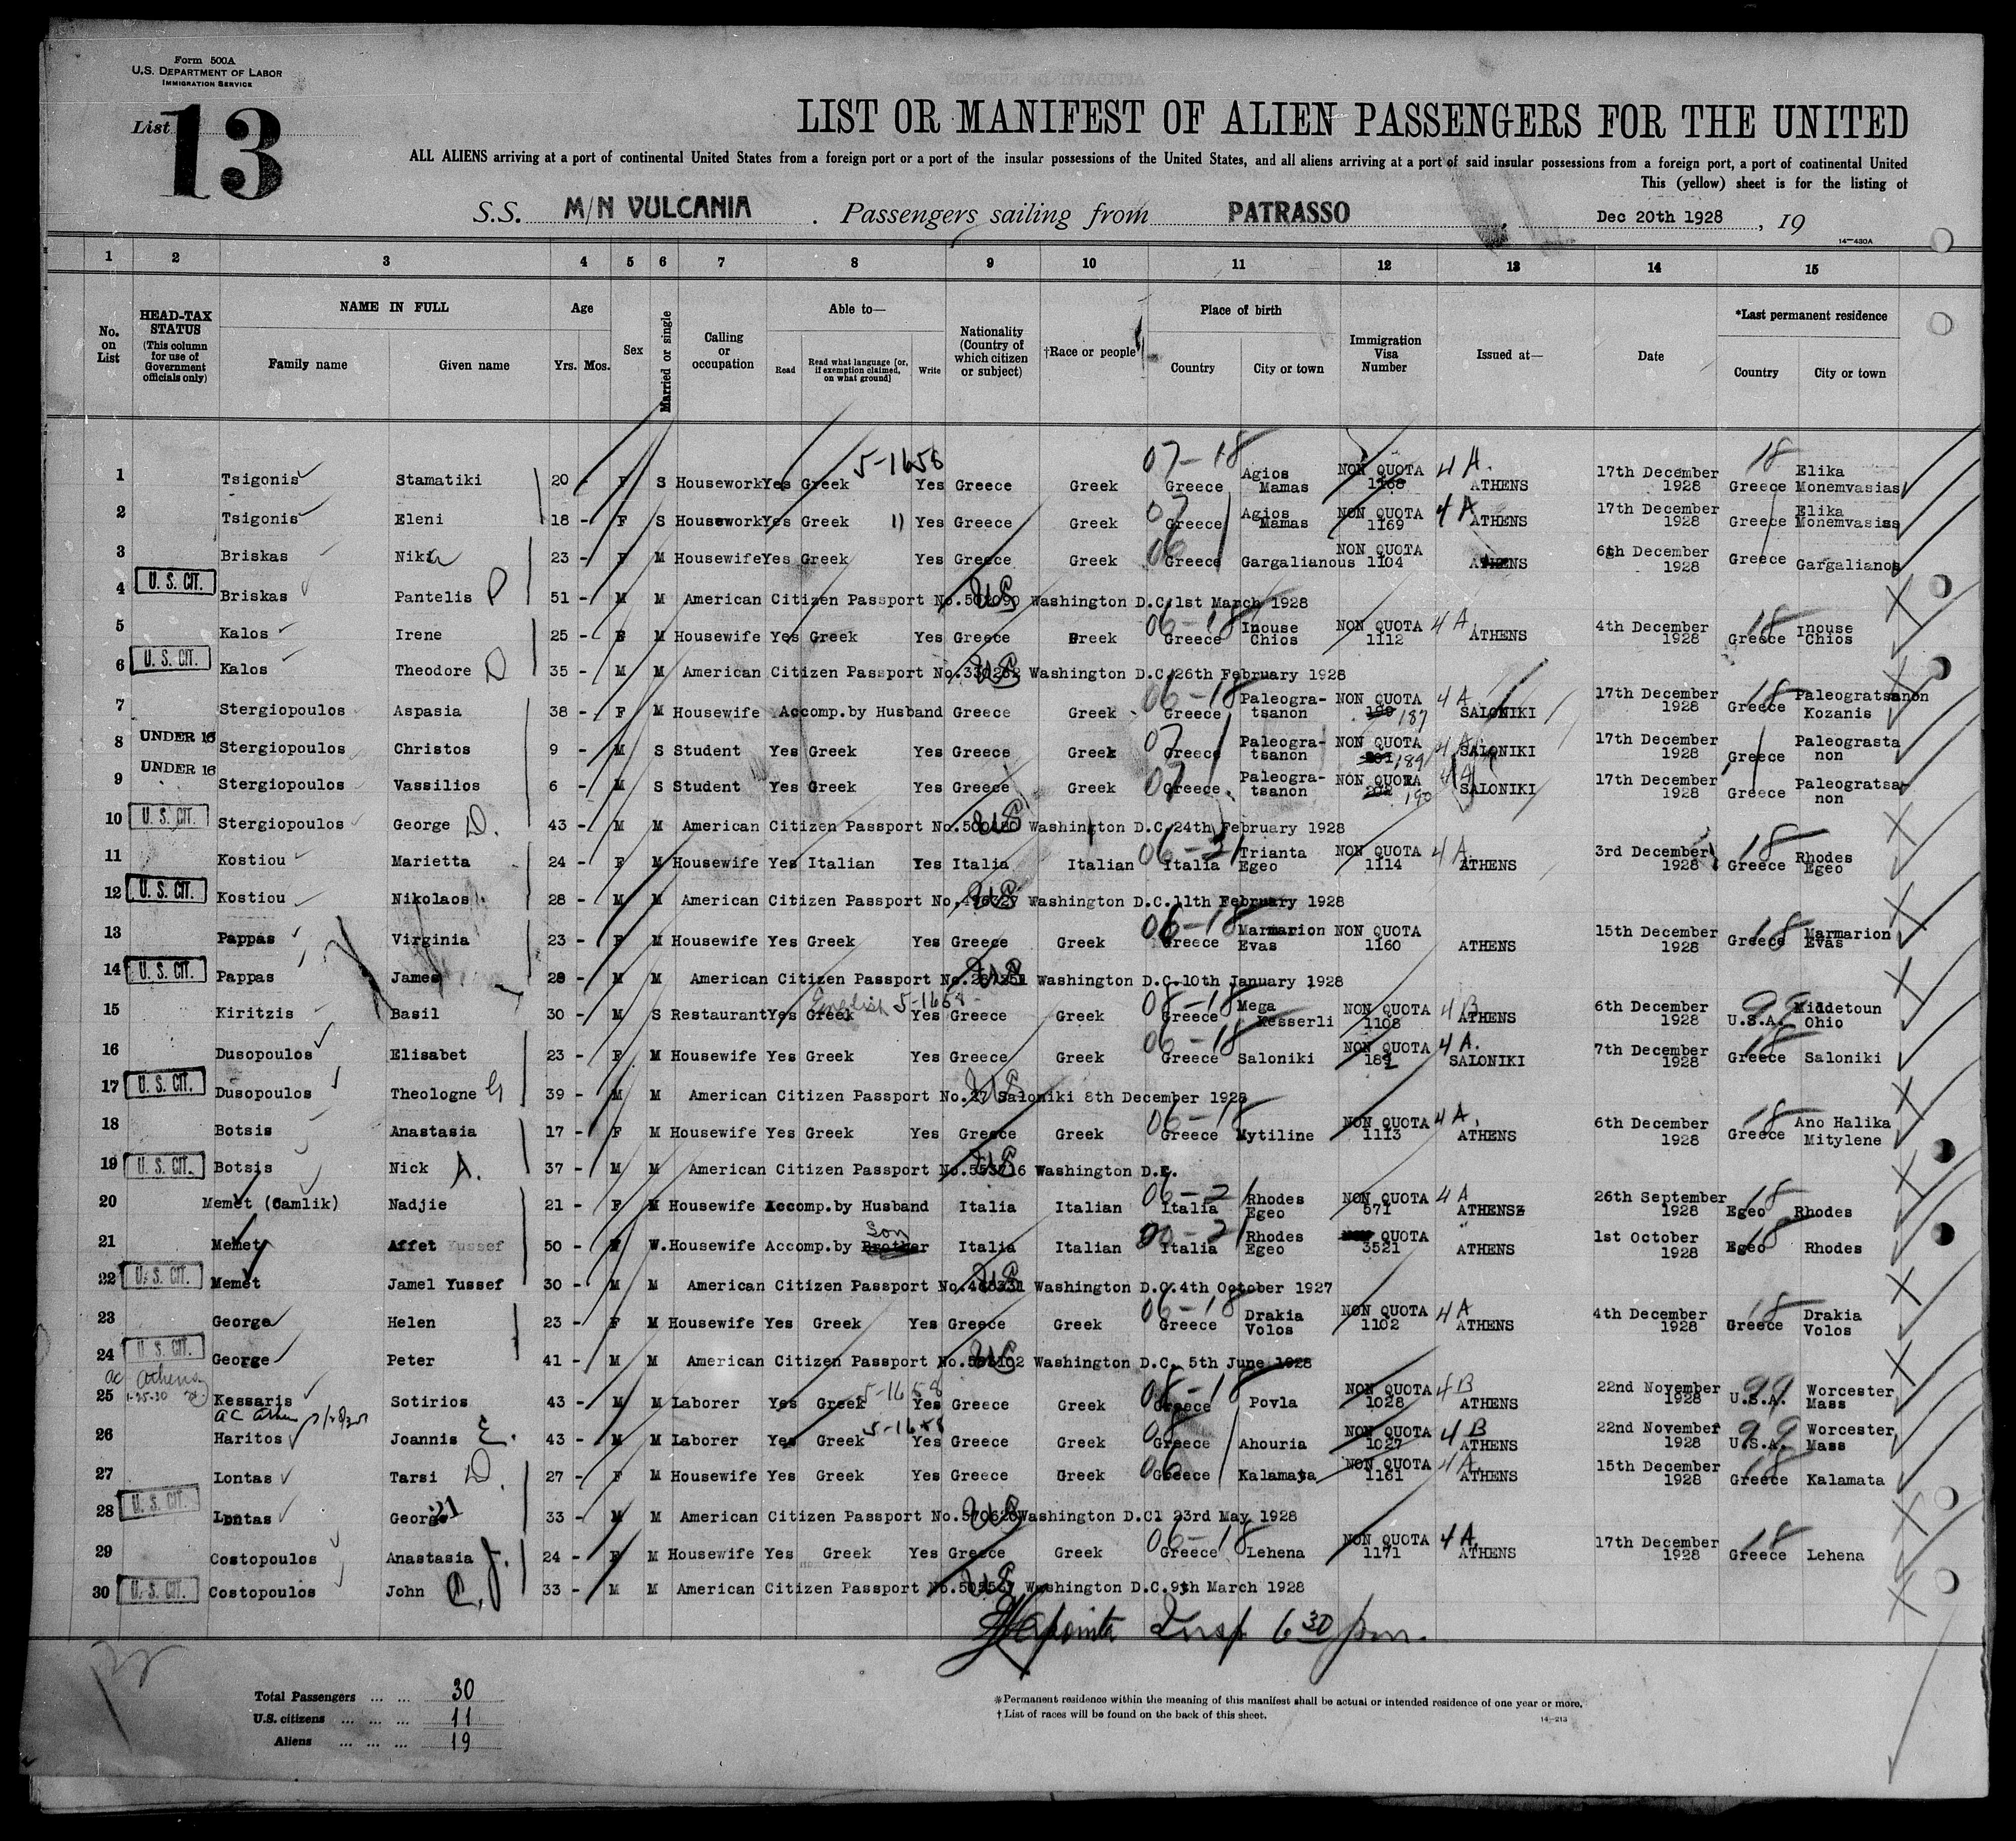 Form 500A
U.S. DEPARTMENT OF LABOR
IMMIGRATION SERVICE
List 13
LIST OR MANIFEST OF ALIEN PASSENGERS FOR THE UNITED
ALL ALIENS arriving at a port of continental United States from a foreign port or a port of the insular possessions of the United States, and all aliens arriving at a port of said insular possessions from a foreign port, a port of continental United
This (yellow) sheet is for the listing of
S.S. M/N VULCANIA . Passengers sailing from PATRASSO , Dec 20th 1928 , 19
14—430A
1 2 3 4 5 6 7 8 9 10 11 12 13 14 15
No. on List
HEAD-TAX STATUS (This column for use of Government officials only)
NAME IN FULL Family name Given name
Age Yrs. Mos.
Sex
Married or single
Calling or occupation
Able to— Read Read what language [or, if exemption claimed, on what ground] Write
Nationality (Country of which citizen or subject)
†Race or people
Place of birth Country City or town
Immigration Visa Number
Issued at—
Date
*Last permanent residence Country City or town
1 Tsigonis Stamatiki 20 - F S Housework Yes Greek 5-1658 Yes Greece Greek 07-18 Greece Agios Mamas NON QUOTA 1168 4 A. ATHENS 17th December 1928 18 Greece Elika Monemvasias
2 Tsigonis Eleni 18 - F S Housework Yes Greek 11 Yes Greece Greek 07 Greece Agios Mamas NON QUOTA 1169 4 A ATHENS 17th December 1928 Greece Elika Monemvasias
3 Briskas Nika 23 - F M Housewife Yes Greek Yes Greece Greek 06 Greece Gargalianous NON QUOTA 1104 ATHENS 6th December 1928 Greece Gargalianos
4 U. S. CIT. Briskas Pantelis P 51 - M M American Citizen Passport US Washington D.C. 1st March 1928
5 Kalos Irene 25 - M Housewife Yes Greek Yes Greece Greek 06-18 Greece Inouse Chios NON QUOTA 1112 4 A ATHENS 4th December 1928 18 Greece Inouse Chios
6 U. S. CIT. Kalos Theodore D 35 - M M American Citizen Passport US Washington D.C. 26th February 1928
7 Stergiopoulos Aspasia 38 - F M Housewife Accomp.by Husband Greece Greek 06-18 Greece Paleogra-tsanon NON QUOTA 187 4 A SALONIKI 17th December 1928 18 Greece Paleogratsanon Kozanis
8 UNDER 16 Stergiopoulos Christos 9 - M S Student Yes Greek Yes Greece Greek 07 Greece Paleogra-tsanon NON QUOTA 189 4 A SALONIKI 17th December 1928 Greece Paleograsta non
9 UNDER 16 Stergiopoulos Vassilios 6 - M S Student Yes Greek Yes Greece Greek 07 Greece Paleogra-tsanon NON QUOTA 190 4 A SALONIKI 17th December 1928 Greece Paleogratsa-non
10 U. S. CIT. Stergiopoulos George D. 43 - M M American Citizen Passport US Washington D.C. 24th February 1928
11 Kostiou Marietta 24 - F M Housewife Yes Italian Yes Italia Italian 06-21 Italia Trianta Egeo NON QUOTA 1114 4 A ATHENS 3rd December 1928 18 Greece Rhodes Egeo
12 U. S. CIT. Kostiou Nikolaos 28 - M M American Citizen Passport US Washington D.C. 11th February 1928
13 Pappas Virginia 23 - F M Housewife Yes Greek Yes Greece Greek 06-18 Greece Marmarion Evas NON QUOTA 1160 ATHENS 15th December 1928 18 Greece Marmarion Evas
14 U. S. CIT. Pappas James 28 - M M American Citizen Passport US Washington D.C. 10th January 1928
15 Kiritzis Basil 30 - M S Restaurant Yes Greek English 5-1658 Yes Greece Greek 08-18 Greece Mega Kesserli NON QUOTA 1108 4 B ATHENS 6th December 1928 99 U.S.A. Middetoun Ohio
16 Dusopoulos Elisabet 23 - F M Housewife Yes Greek Yes Greece Greek 06-18 Greece Saloniki NON QUOTA 182 4 A. SALONIKI 7th December 1928 18 Greece Saloniki
17 U. S. CIT. Dusopoulos Theologne G 39 - M M American Citizen Passport No.27 US Saloniki 8th December 1928
18 Botsis Anastasia 17 - F M Housewife Yes Greek Yes Greece Greek 06-18 Greece Mytiline NON QUOTA 1113 4 A. ATHENS 6th December 1928 18 Greece Ano Halika Mitylene
19 U. S. CIT. Botsis Nick A. 37 - M M American Citizen Passport US Washington D.C.
20 Memet (Camlik) Nadjie 21 - F M Housewife Accomp.by Husband Italia Italian 06-21 Italia Rhodes Egeo NON QUOTA 571 4 A ATHENS 26th September 1928 18 Egeo Rhodes
21 Memet Affet Yussef 50 - F W. Housewife Accomp.by Brother Son Italia Italian 00-21 Italia Rhodes Egeo NON QUOTA 3521 ATHENS 1st October 1928 18 Egeo Rhodes
22 U. S. CIT. Memet Jamel Yussef 30 - M M American Citizen Passport US Washington D.C. 4th October 1927
23 George Helen 23 - F M Housewife Yes Greek Yes Greece Greek 06-18 Greece Drakia Volos NON QUOTA 1102 4 A ATHENS 4th December 1928 18 Greece Drakia Volos
24 U. S. CIT. George Peter 41 - M M American Citizen Passport US Washington D.C. 5th June 1928
ac Athens 1-25-30
25 Kessaris Sotirios 43 - M M Laborer Yes Greek 5-1658 Yes Greece Greek 08-18 Greece Povla NON QUOTA 1028 4 B ATHENS 22nd November 1928 99 U.S.A. Worcester Mass
ac Athens
26 Haritos Joannis E. 43 - M M Laborer Yes Greek 5-1658 Yes Greece Greek 08 Greece Ahouria NON QUOTA 1027 4 B ATHENS 22nd November 1928 99 U.S.A. Worcester Mass
27 Lontas Tarsi D. 27 - F M Housewife Yes Greek Yes Greece Greek 06 Greece Kalamata NON QUOTA 1161 4 A ATHENS 15th December 1928 18 Greece Kalamata
28 U. S. CIT. Lontas George 21 33 - M M American Citizen Passport US Washington D.C1 23rd May 1928
29 Costopoulos Anastasia J. 24 - F M Housewife Yes Greek Yes Greece Greek 06-18 Greece Lehena NON QUOTA 1171 4 A. ATHENS 17th December 1928 18 Greece Lehena
30 U. S. CIT. Costopoulos John C. 33 - M M American Citizen Passport US Washington D.C. 9th March 1928
Insp 6 30 pm.
Total Passengers ... ... 30
U.S. citizens ... ... ... 11
Aliens ... ... ... 19
*Permanent residence within the meaning of this manifest shall be actual or intended residence of one year or more.
†List of races will be found on the back of this sheet.
14—213